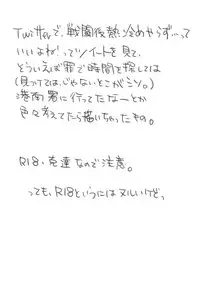 Twitterで、戦闘後熱冷めやらず…って
いいよね!ってツイートを見て、
そういえば罪で時間を探しては
(見つけては、じゃないとこがミソ。)
港南署に行ってたなーとか
色々考えてたら描いちゃったもの。
R18、克達なので注意。
っても、R18というにはヌルいけど。